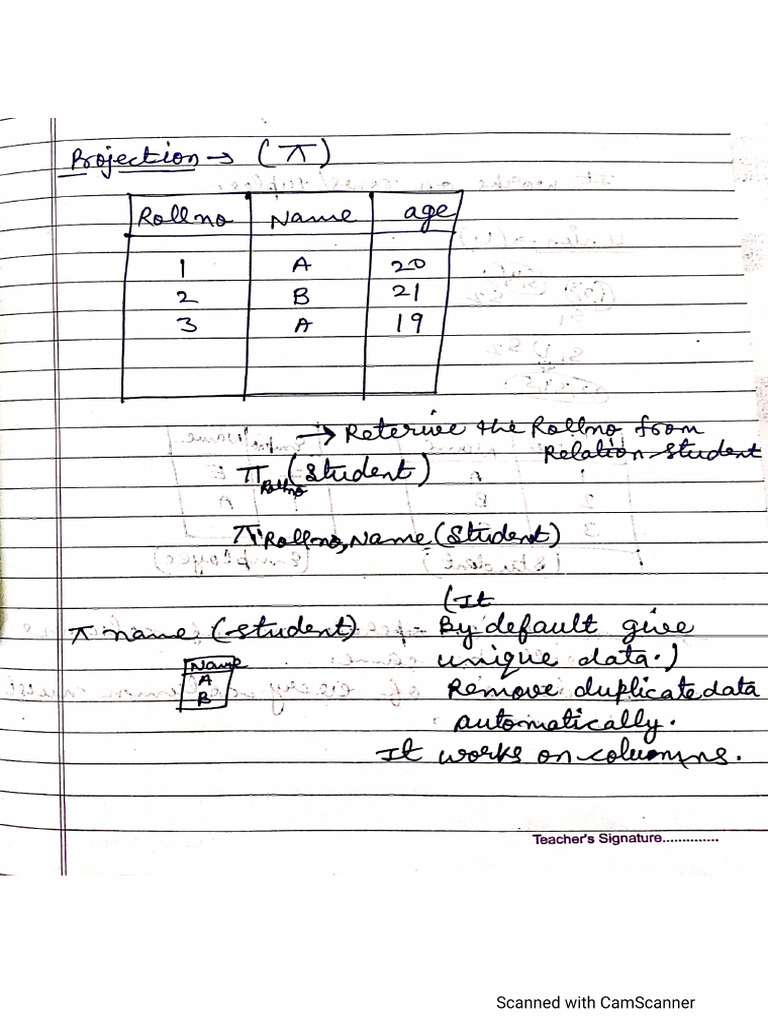 Projection → (π)
Rollno Name age
1 A 20
2 B 21
3 A 19
→ Reterive the Rollno from
Relation student
π Rollno (Student)
π Rollno, Name (Student)
(It
π name (student) :- By default give
unique data.)
Name
A
B
Remove duplicate data
automatically.
It works on columns.
Teacher's Signature..............
Scanned with CamScanner